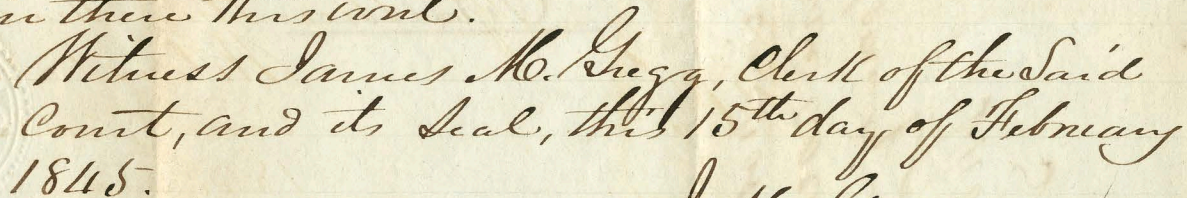 then there this writ.
Witness James M. Gregg, Clerk of the Said
Court, and its Seal, this 15th day of February
1845.